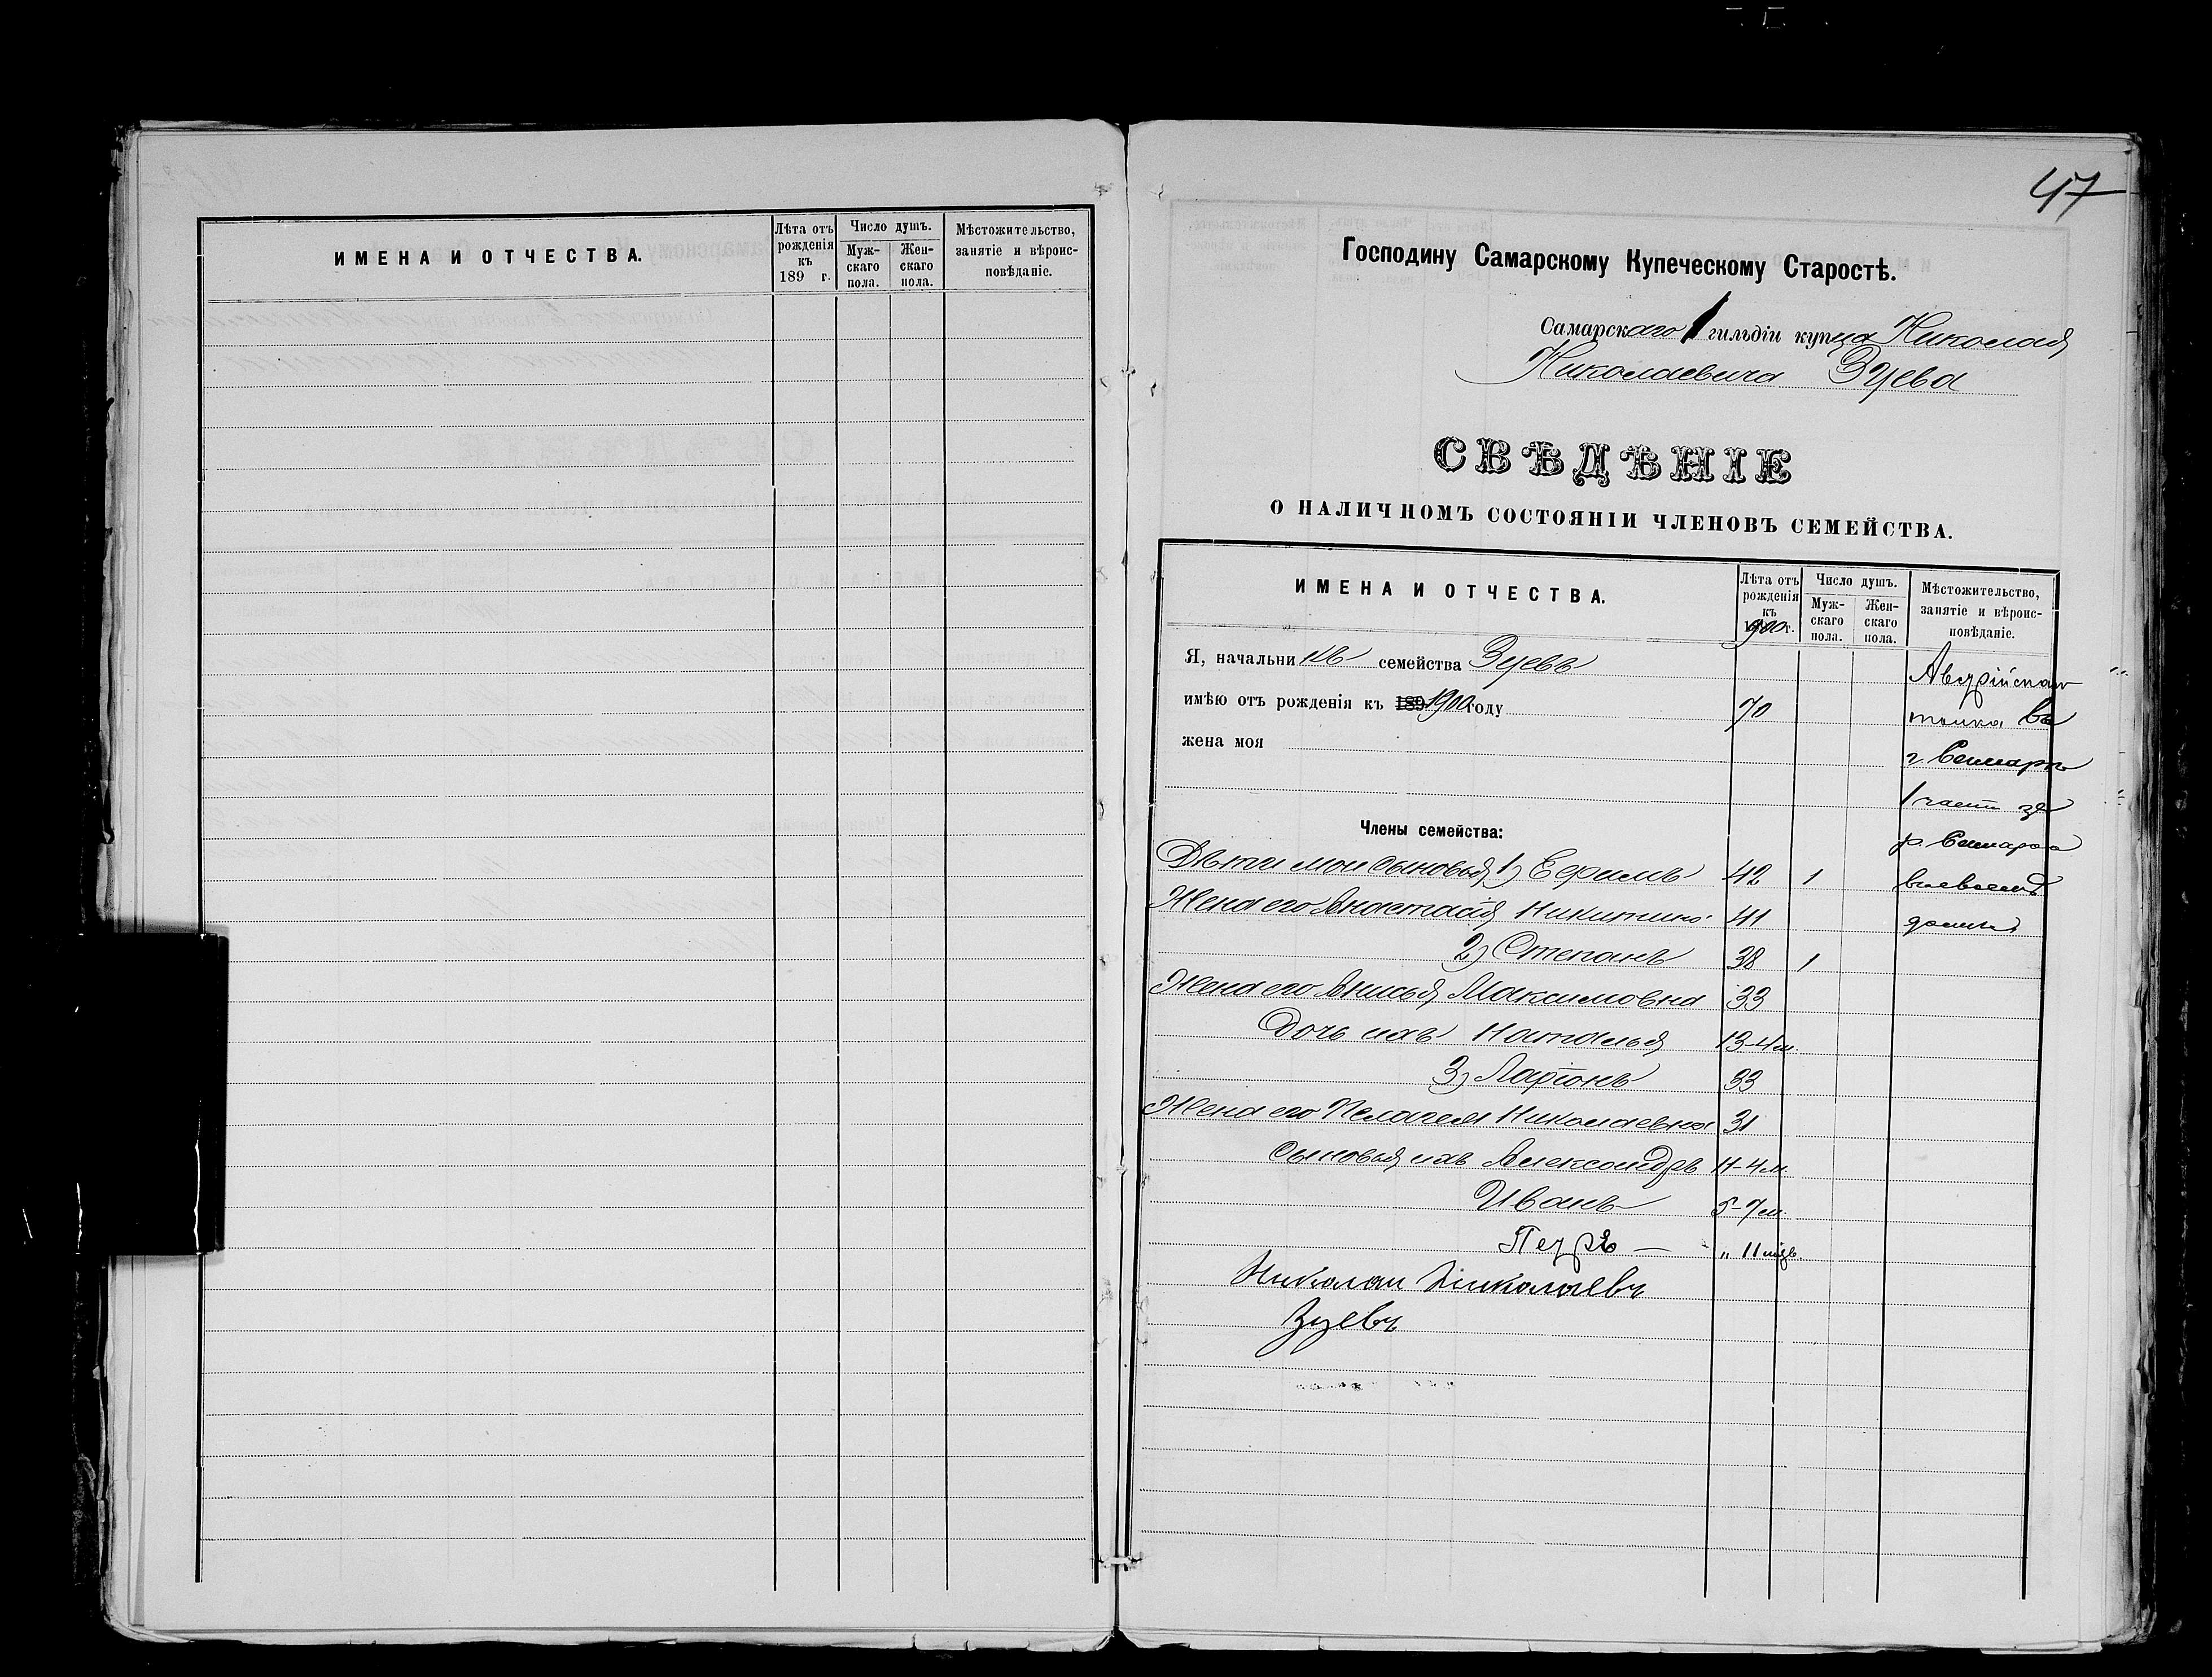 ИМЕНА И ОТЧЕСТВА.
Лѣта отъ рожденія къ 189 г.
Число душъ.
Мужскаго пола.
Женскаго пола.
Мѣстожительство, занятіе и вѣроисповѣданіе.
47
Господину Самарскому Купеческому Старостѣ.
Самарскаго 1 гильдіи купца Николая
Николаевича Зуева
СВѢДѢНІЕ
О НАЛИЧНОМЪ СОСТОЯНІИ ЧЛЕНОВЪ СЕМЕЙСТВА.
ИМЕНА И ОТЧЕСТВА.
Лѣта отъ
рожденія
къ
1900 г.
Число душъ.
Муж-
скаго
пола.
Жен-
скаго
пола.
Мѣстожительство,
занятіе и вѣроис-
повѣданіе.
Я, начальникъ семейства Зуевъ
имѣю отъ рожденія къ 189 1900 году 70
жена моя
Австрійскаго
толка Въ
г. Самарѣ
1 части за
р. Самарой
Члены семейства:
Дѣти мои сыновья, 1) Ефимъ 42 1
Жена его Анастасія Никитина 41
2) Степанъ 38 1
Жена его Анисья Максимовна 33
Дочь ихъ Наталья 13-4 м.
3) Ларіонъ 33
Жена его Пелагея Николаевна 31
Сыновья ихъ Александръ 11-4 м.
Иванъ 5-7 м.
Петръ — „ 11 мцъ
Николаи Николаевъ
Зуевъ